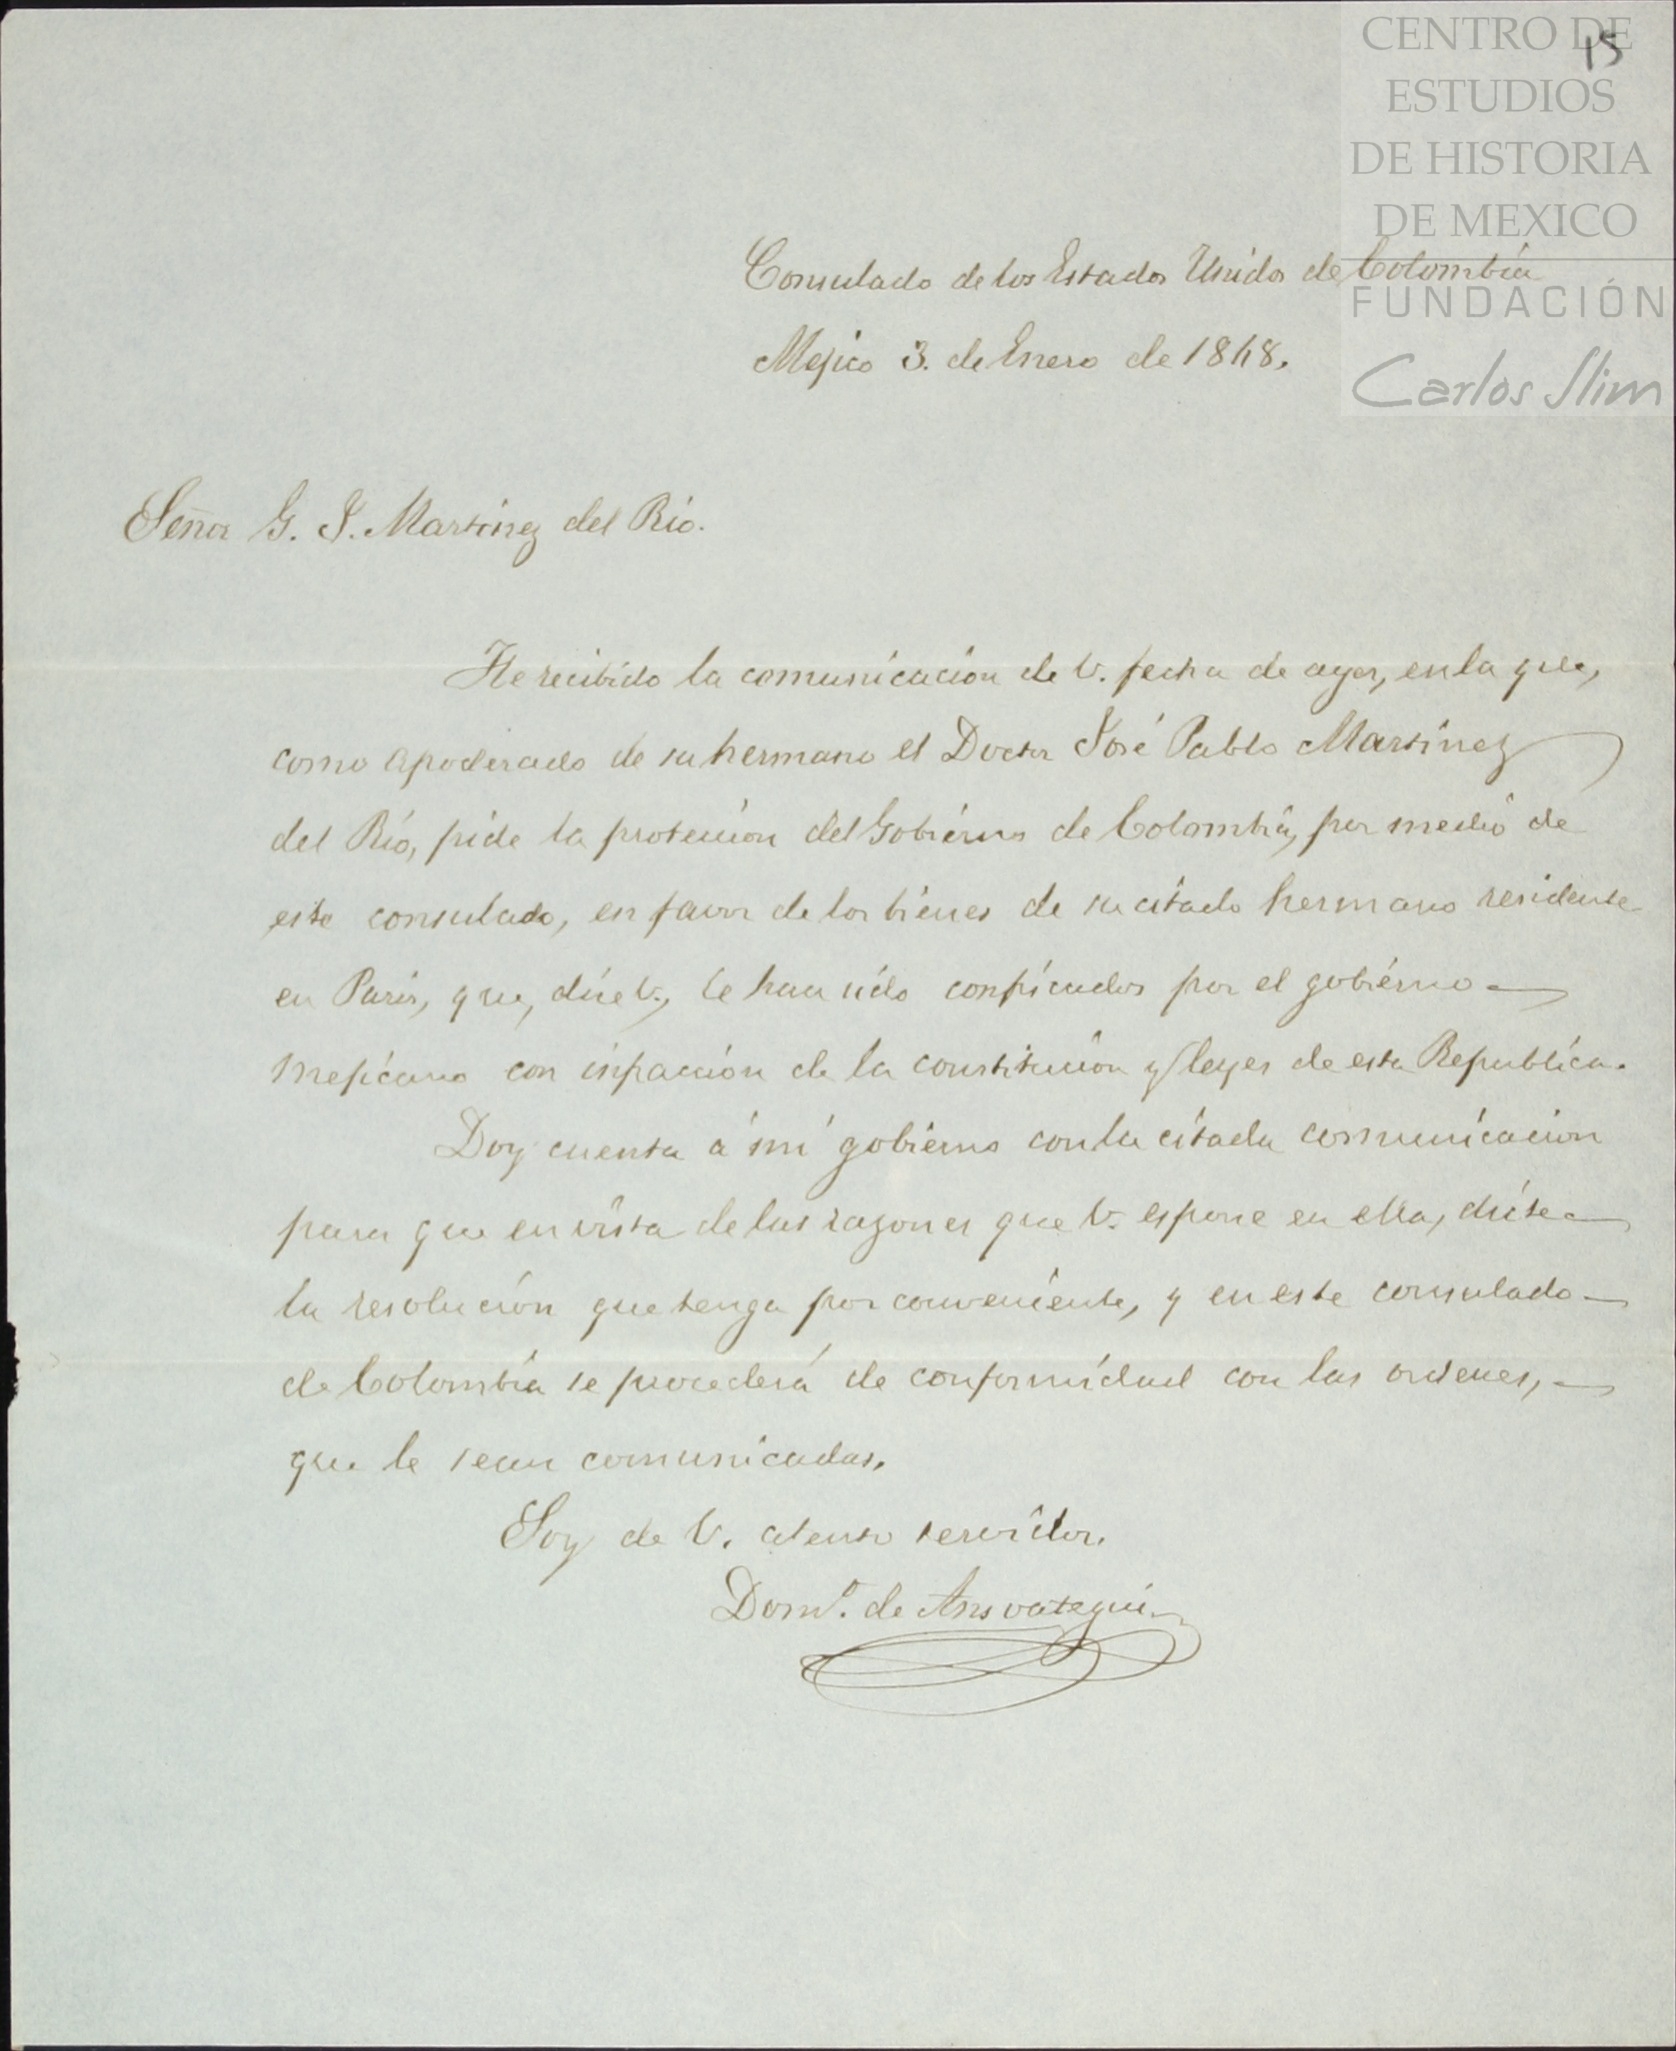 15
CENTRO DE
ESTUDIOS
DE HISTORIA
DE MEXICO
FUNDACIÓN
Carlos Slim
Consulado de los Estados Unidos de Colombia
Mejico 3. de Enero de 1868.
Señor G. J. Martinez del Rio.
He recibido la comunicacion de V. fecha de ayer, en la que,
como apoderado de su hermano el Doctor José Pablo Martinez
del Rio, pide la proteccion del Gobierno de Colombia, por medio de
este consulado, en favor de los bienes de su citado hermano residente
en Paris, que, dice V., le han sido confiscados por el gobierno
mejicano con infraccion de la constitucion y leyes de esta Republica.
Doy cuenta á mi gobierno con la citada comunicacion
para que en vista de las razones que V. espone en ella, dicte
la resolucion que tenga por conveniente, y en este consulado
de Colombia se procederá de conformidad con las ordenes,
que le sean comunicadas.
Soy de V. atento servidor.
Domo. de Ansoategui